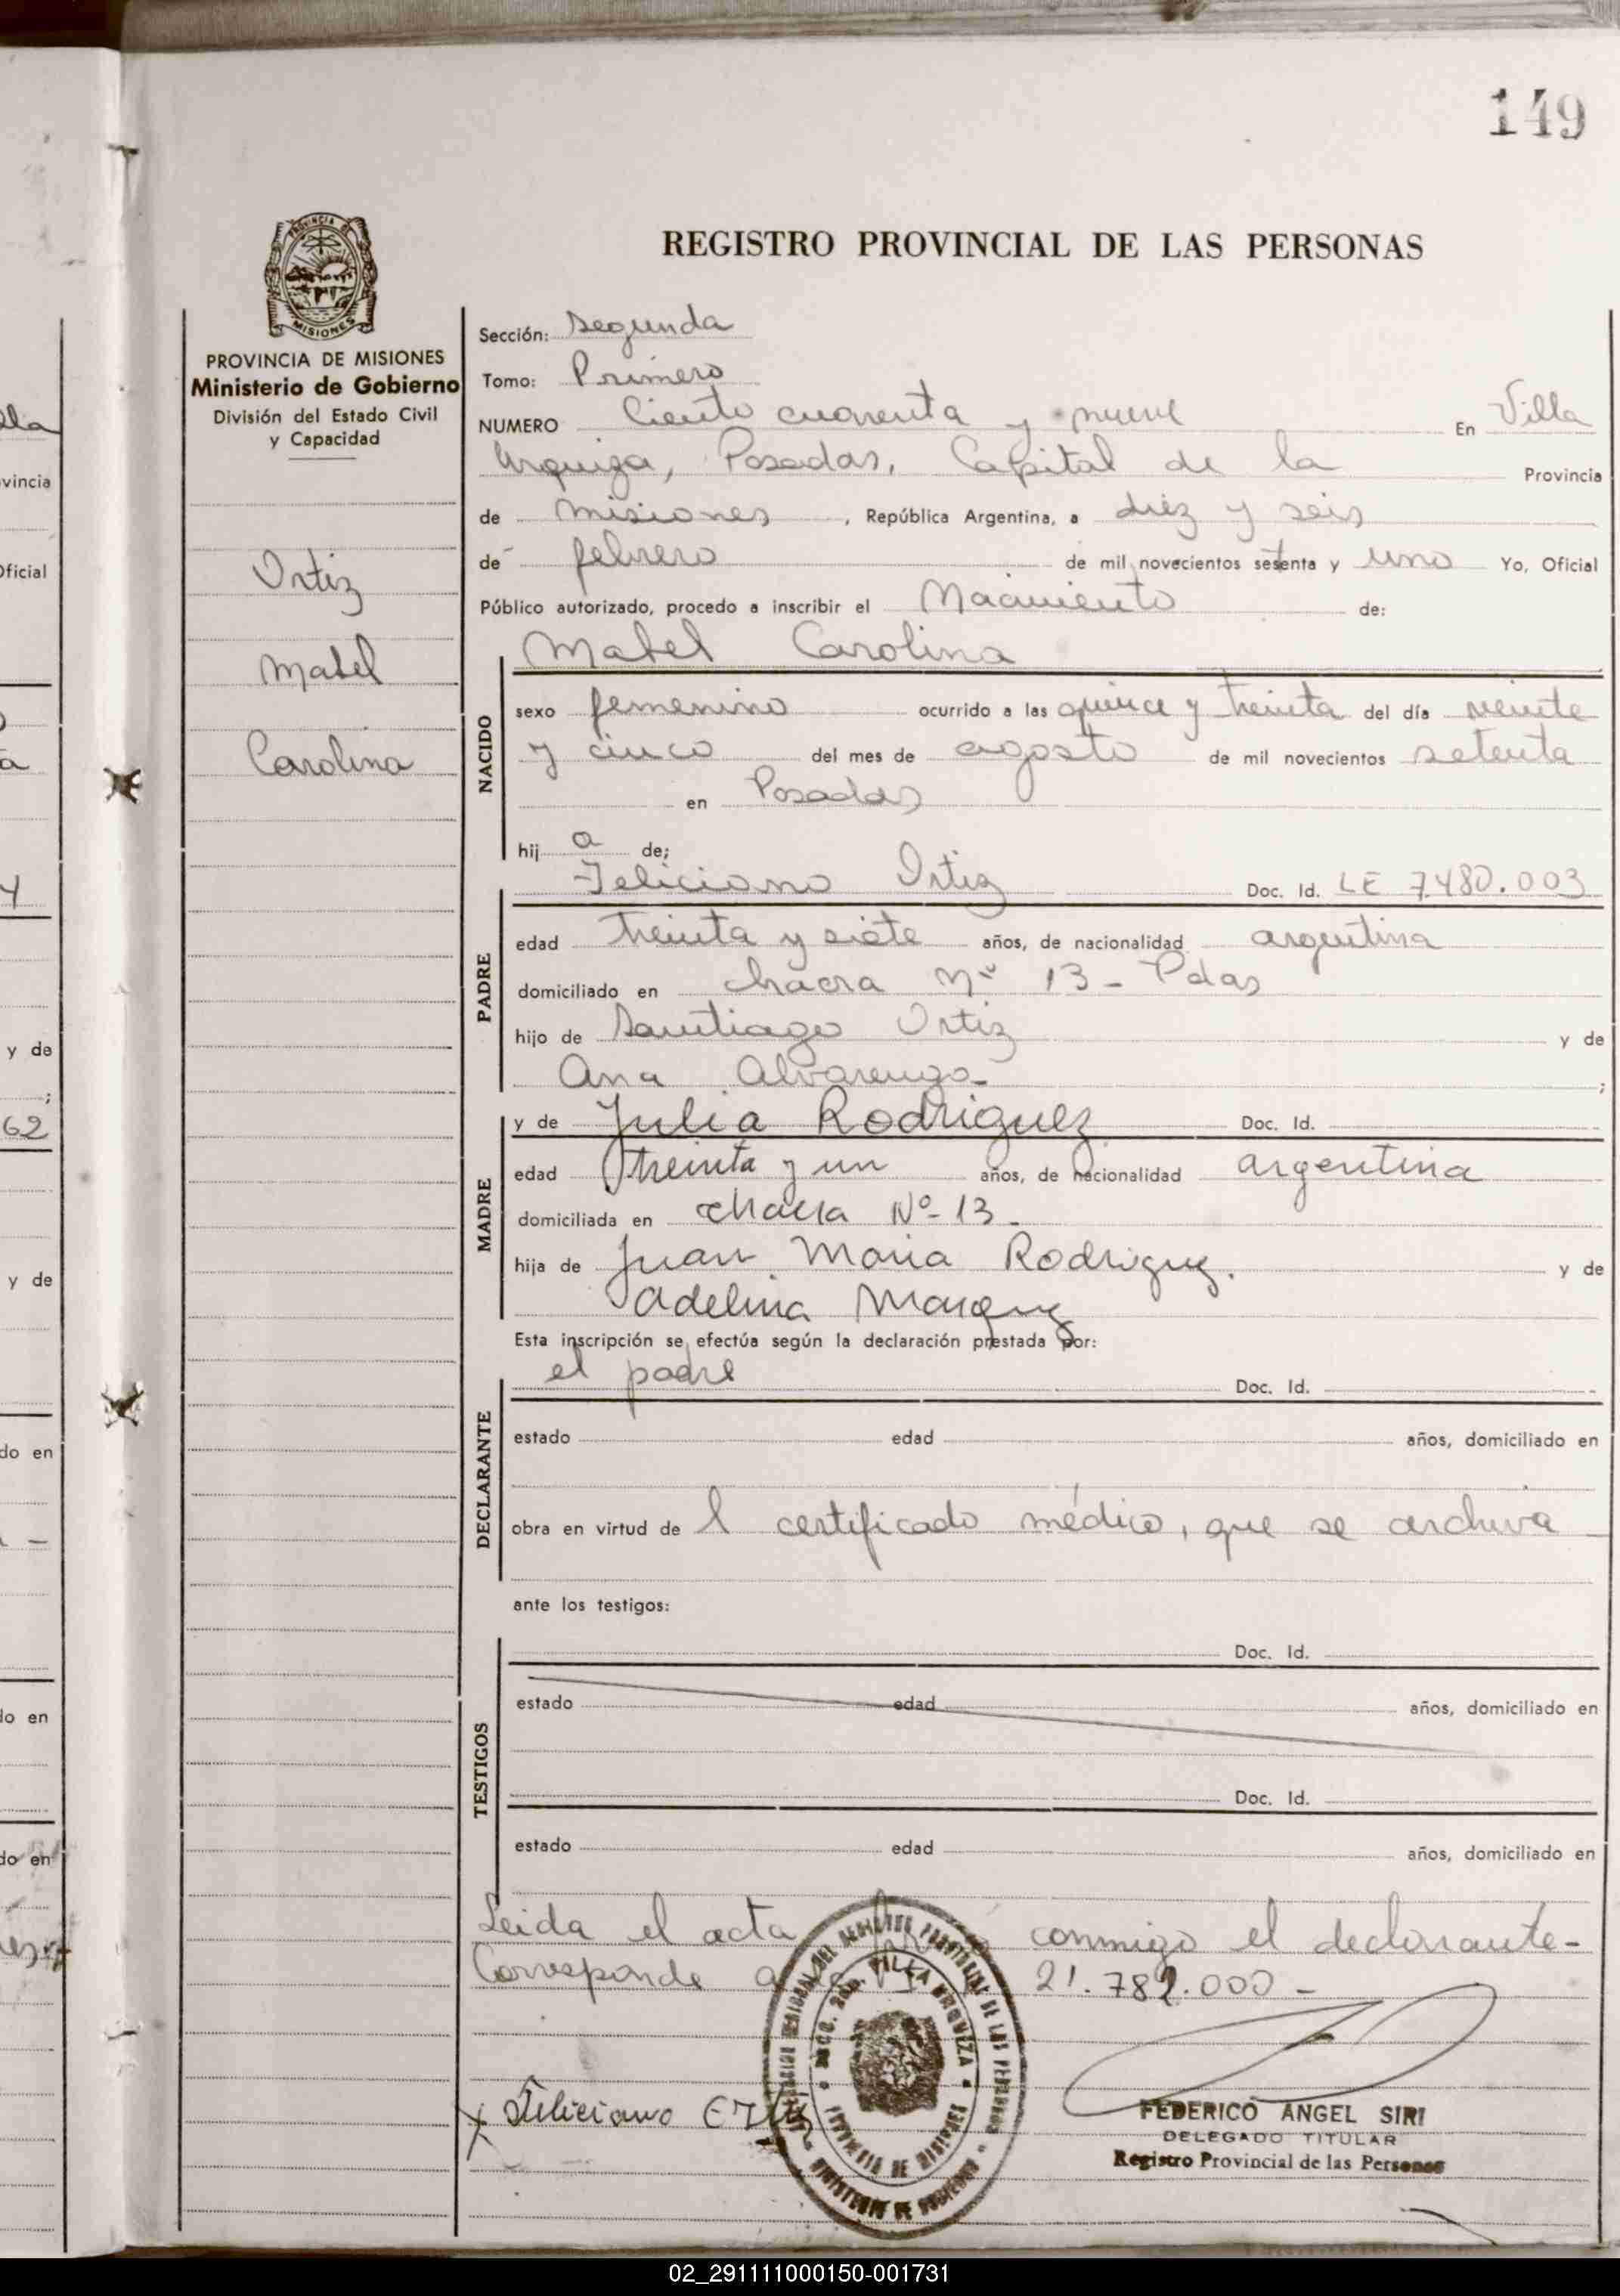 149
REGISTRO PROVINCIAL DE LAS PERSONAS
PROVINCIA DE MISIONES
Ministerio de Gobierno
División del Estado Civil
y Capacidad
Ortiz
Mabel
Carolina
Sección: Segunda
Tomo: Primero
NUMERO Ciento cuarenta y nueve En Villa
Urquiza, Posadas, Capital de la Provincia
de Misiones, República Argentina, a diez y seis
de febrero de mil novecientos setenta y uno Yo, Oficial
Público autorizado, procedo a inscribir el Nacimiento de:
NACIDO
Mabel Carolina
sexo femenino ocurrido a las quince y treinta del día veinte
y cinco del mes de agosto de mil novecientos setenta
en Posadas
hij a de;
PADRE
Feliciano Ortiz Doc. Id. LE 7480.003
edad treinta y siete años, de nacionalidad argentina
domiciliado en chacra Nº 13 - Pdas
hijo de Santiago Ortiz y de
Ana Alvarenga - ;
MADRE
y de Julia Rodriguez Doc. Id.
edad treinta y un años, de nacionalidad argentina
domiciliada en chacra Nº 13 -
hija de Juan Maria Rodriguez. y de
Adelina Marquez
Esta inscripción se efectúa según la declaración prestada por:
DECLARANTE
el padre Doc. Id.
estado edad años, domiciliado en
obra en virtud de l certificado médico, que se archiva
ante los testigos:
TESTIGOS
Doc. Id.
estado edad años, domiciliado en
Doc. Id.
estado edad años, domiciliado en
Leida el acta conmigo el declarante -
Corresponde a 21.782.000 -
Feliciano
FEDERICO ANGEL SIRI
DELEGADO TITULAR
Registro Provincial de las Personas
02_291111000150-001731